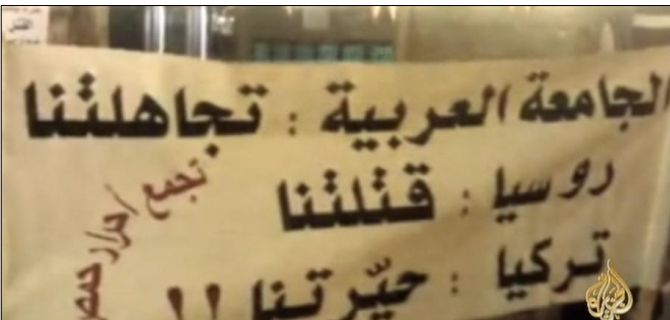 الجامعة العربية : تجاهلتنا
روسيا : قتلتنا
تركيا : حيّرتنا !!
تجمع أحرار حمص